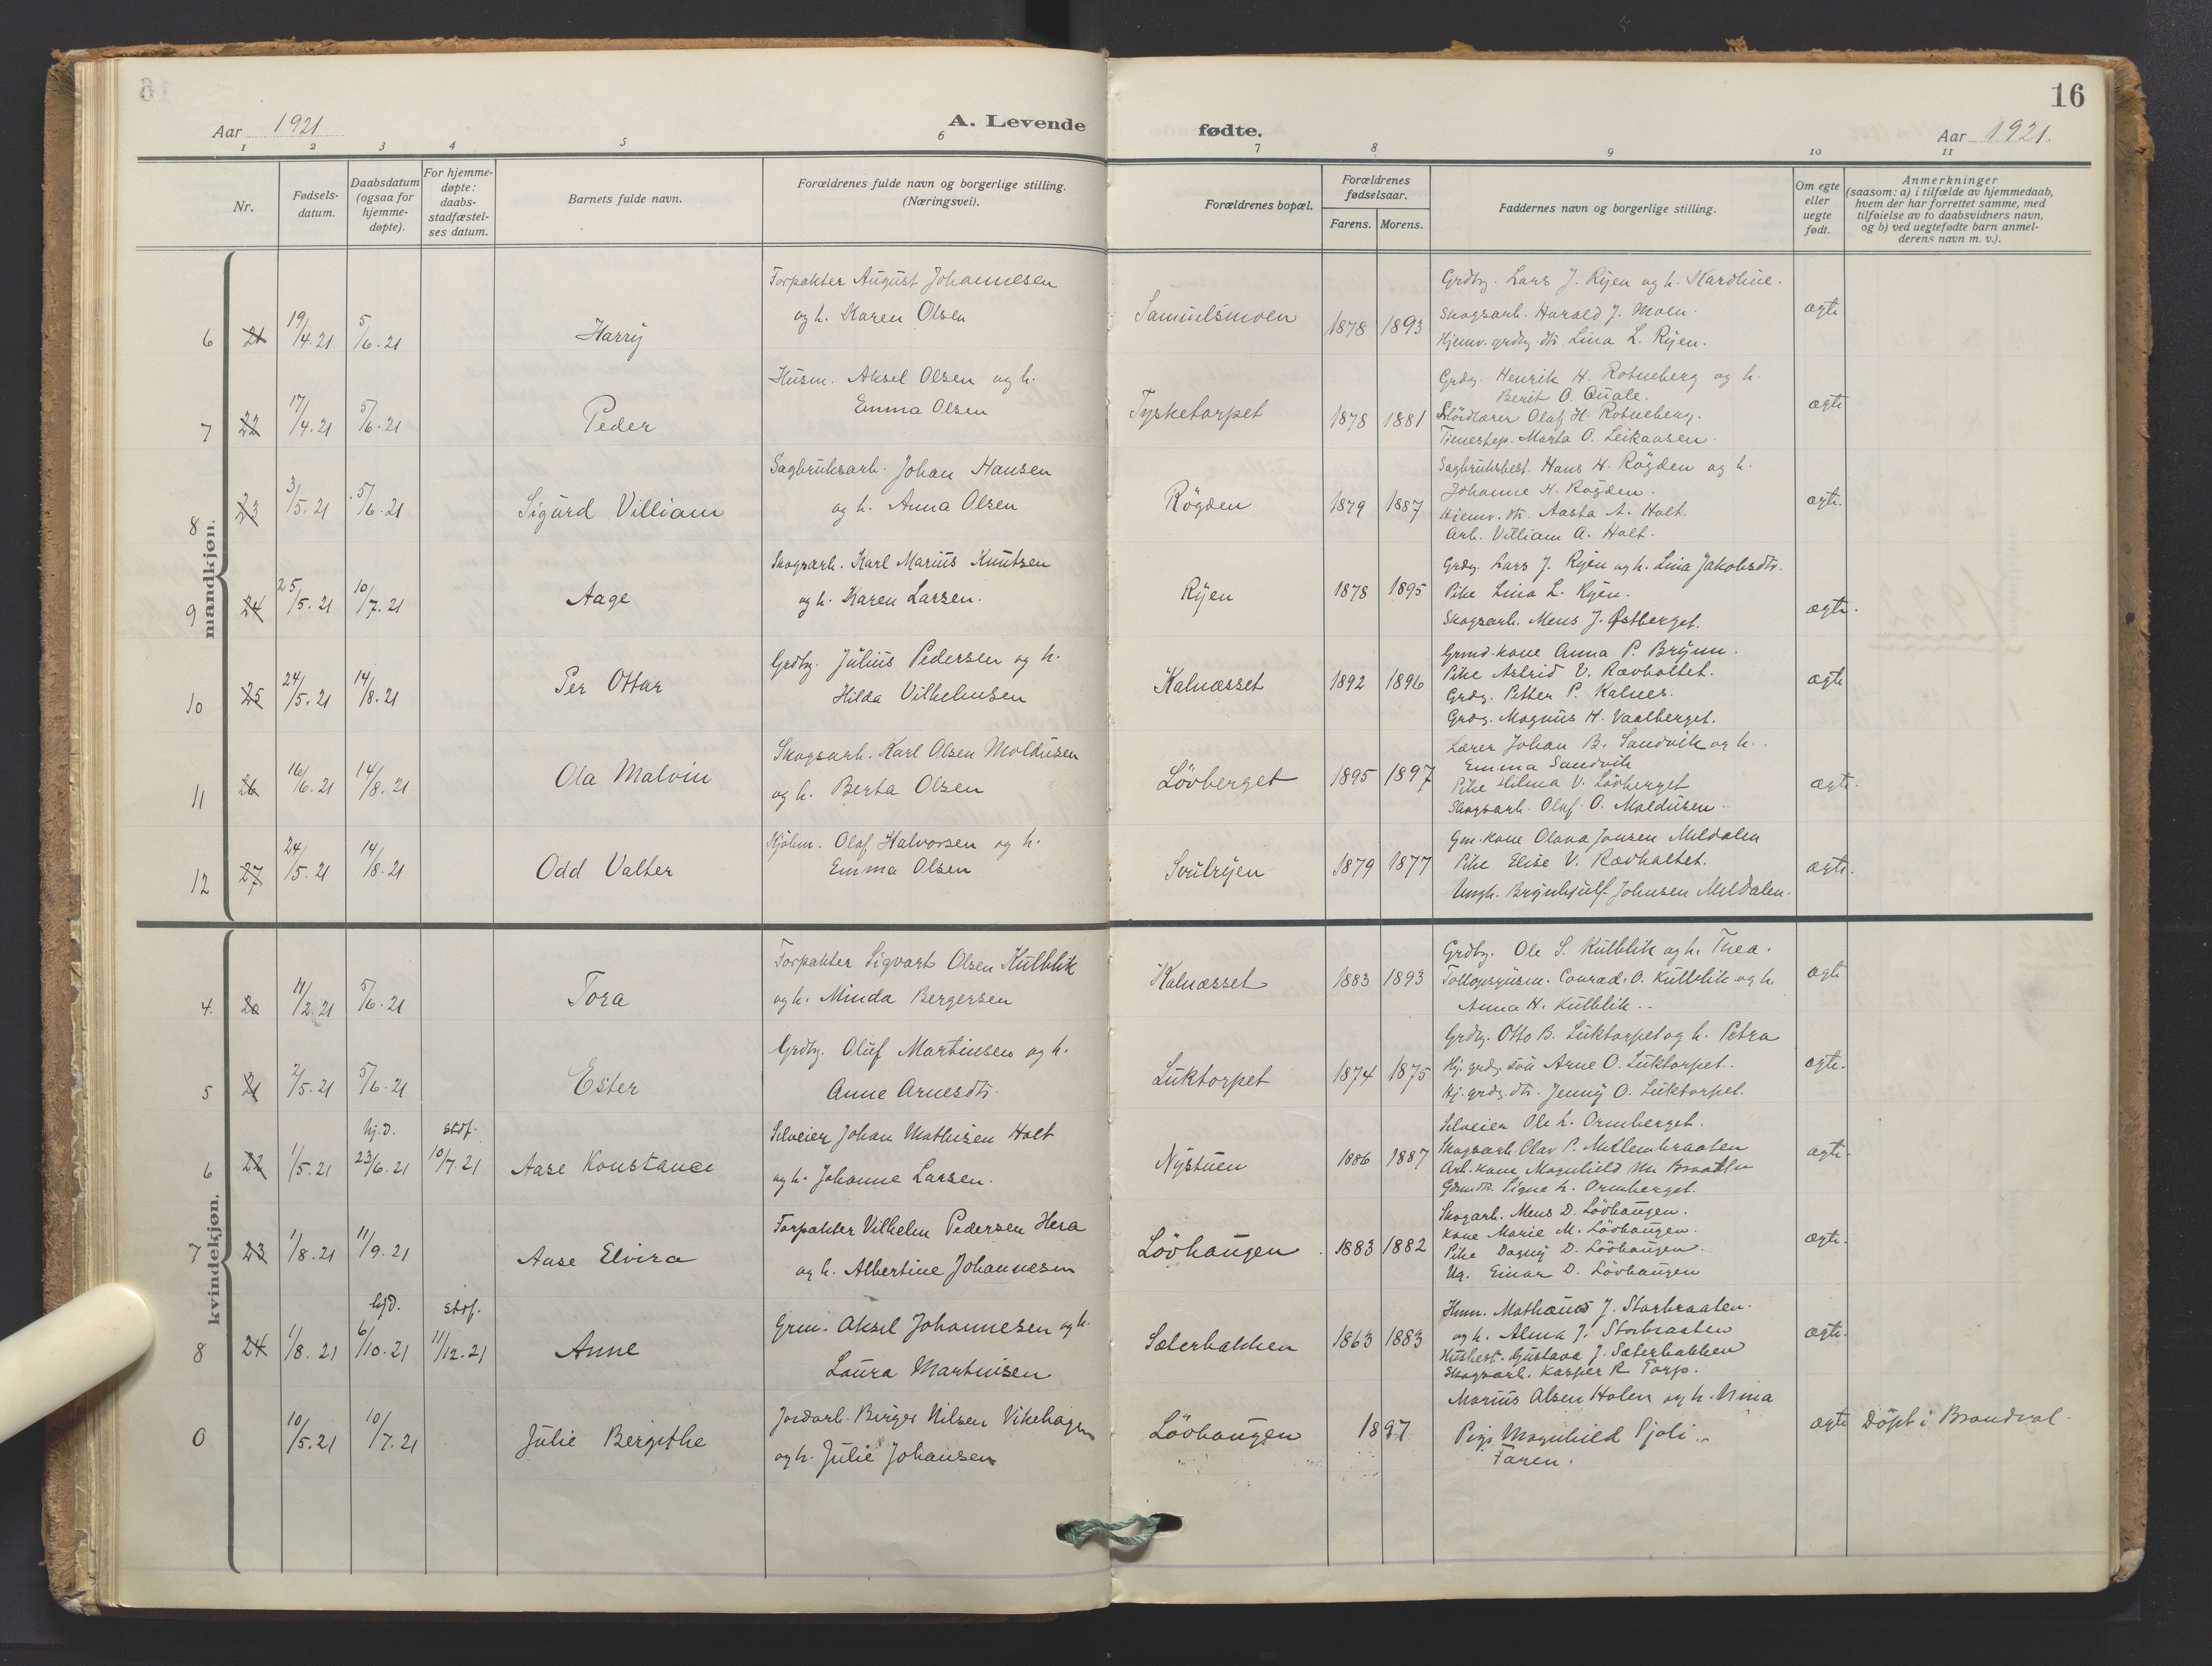 Aar 1921
A. Levende
fødte.
16
Aar 1921.
1 2 3 4 5 6 7 8 9 10 11
Nr.
Fødsels-
datum.
Daabsdatum
(ogsaa for
hjemme-
døpte).
For hjemme-
døpte:
daabs-
stadfæstel-
ses datum.
Barnets fulde navn.
Forældrenes fulde navn og borgerlige stilling.
(Næringsvei).
Forældrenes bopæl.
Forældrenes
fødselsaar.
Farens. Morens.
Faddernes navn og borgerlige stilling.
Om egte
eller
uegte
født.
Anmerkninger
(saasom: a) i tilfælde av hjemmedaab,
hvem der har forrettet samme, med
tilføielse av to daabsvidners navn,
og b) ved uegtefødte barn anmel-
derens navn m. v.).
mandkjøn.
6 21 19/4.21 5/6.21 Harry
Forpakter August Johannesen
og h. Karen Olsen
Samuelsmoen 1878 1893
Grdbr. Lars J. Ryen og h. Mardhine.
Skogsarb. Harald J. Moen.
Hjemv. grdbr. dtr. Lina L. Ryen.
egte
7 22 17/4.21 5/6.21 Peder
Husm. Aksel Olsen og h.
Emma Olsen
Tysketorpet 1878 1881
Grdbr. Henrik H. Rotneberg og h.
Berit O. Quale.
Slöidlærer Olaf H. Rotneberg.
Tjenestep. Marta O. Leikaasen.
egte
8 23 3/5.21 5/6.21 Sigurd Villiam
Sagbruksarb. Johan Hansen
og h. Anna Olsen
Rögden 1879 1887
Sagbruksbest. Hans H. Rögden og h.
Johanne H. Rögden.
Hjemv. dtr. Aasta A. Holt.
Arb. Villiam A. Holt.
egte.
9 24 25/5.21 10/7.21 Aage
Skogsarb. Karl Marius Knutsen
og h. Karen Larsen.
Ryen 1878 1895
Grdbr. Lars J. Ryen og h. Lina Jakobsdtr.
Pike Lina L. Ryen.
Skogsarb. Mens J. Østberget.
egte.
10 25 24/5.21 14/8.21 Per Ottar
Grdbr. Julius Pedersen og h.
Hilda Vilhelmsen
Kalnæsset 1892 1896
Grmd. kone Anna P. Brynn.
Pike Astrid V. Rævholtet.
Grdbr. Petter P. Kalnes.
Grdbr. Magnus H. Vaalberget.
egte
11 26 16/6.21 14/8.21 Ola Malvin
Skogsarb. Karl Olsen Moldusen
og h. Berta Olsen
Lövberget 1895 1897
Lærer Johan B. Sandvik og h.
Emma Sandvik
Pike Hilma V. Lövberget
Skogsarb. Olaf O. Moldusen.
egte.
12 27 24/5.21 14/8.21 Odd Valter
Kjöbm. Olaf Halvorsen og h.
Emma Olsen
Svulryen 1879 1877
Gm. kone Olava Jonsen Meldalen
Pike Elise V. Rævholtet.
Ungk. Brynhjulf Johnsen Meldalen.
egte.
kvindekjøn.
4. 20 11/2.21 5/6.21 Tora
Forpakter Sigvart Olsen Kulblik
og h. Minda Bergersen
Kalnæsset 1883 1893
Grdbr. Ole S. Kulblik og h. Thea.
Tollopsynsm. Conrad. O. Kulblik og h.
Anna H. Kulblik.
egte
5 21 2/5.21 5/6.21 Ester
Grdbr. Oluf Martinsen og h.
Anne Arnesdtr.
Luktorpet 1874 1875
Grdbr. Otto B. Luktorpet og h. Petra
Hj. grdbr. sön Arne O. Luktorpet.
Hj. grdbr. dtr. Jenny O. Luktorpet.
egte.
6 22 1/5.21 hj.d. 23/6.21 stdf. 10/7.21 Aase Konstance
Selveier Johan Mathisen Holt
og h. Johanne Larsen.
Nystuen 1886 1887
Selveier Ole L. Ormberget.
Skogsarb. Olav P. Mellembraaten
Arb. kone Magnhild M. Braaten
Grmdtr. Signe L. Ormberget.
egte.
7 23 1/8.21 11/9.21 Aase Elvira
Forpakter Vilhelm Pedersen Hera
og h. Albertine Johannesen
Lövhaugen 1883 1882
Skogarb. Mens D. Lövhaugen.
Kone Marie M. Lövhaugen.
Pike Dagny D. Lövhaugen.
Ug. Einar D. Lövhaugen
egte.
8 24 1/8.21 hjd. 6/10.21 stdf. 11/12.21 Anne
Grm. Aksel Johannesen og h.
Laura Martinsen
Sæterbakken 1863 1883
Husm. Mathæus J. Storbraaten.
og h. Alma J. Storbraaten
Husbest. Gustava J. Sæterbakken
Skogsarb. Kasper R. Torp.
egte.
0 10/5.21 10/7.21 Julie Bergithe
Jordarb. Birger Nilsen Vikehagen
og h. Julie Johansen
Lövhaugen 1897
Marius Olsen Holen og h. Nina
Pige Magnhild Pjoli.
Faren.
egte Döpt i Brandval.